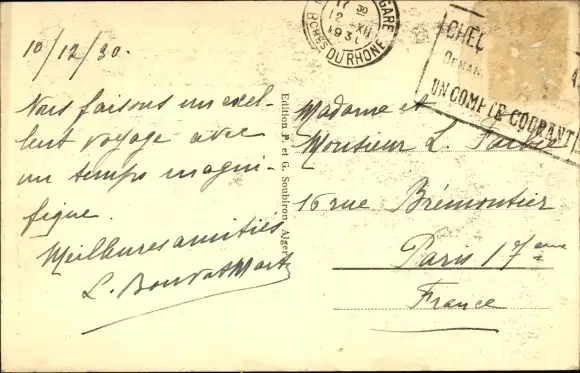 10/12/30.
Nous faisons un excel-
lent voyage avec
un temps magni-
fique.
Meilleures amitiés
L.
Edition P. et G. Soubiron, Alger
GARE
17 30
12 XII
193
BCHES DU RHONE
CHÈ
DEMAN
UN COMPTE COURANT
Madame et
Monsieur L.
16 rue Brémontier
Paris 17 eme
France